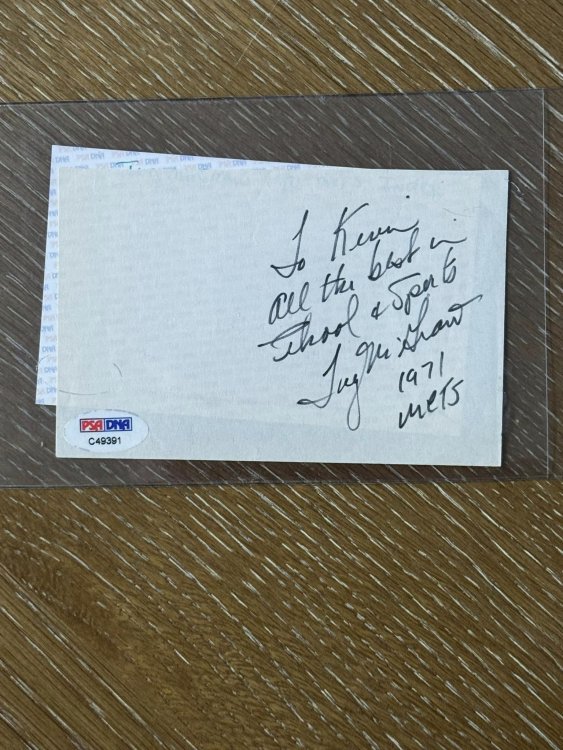 To Kevin
all the best in
School & Sports
Tug McGraw
1971
Mets
PSA DNA
C49391